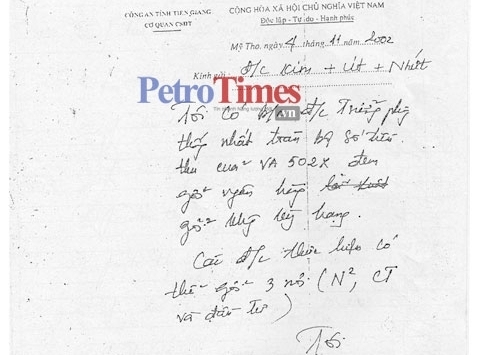 CÔNG AN TỈNH TIỀN GIANG
CƠ QUAN CSĐT
CỘNG HÒA XÃ HỘI CHỦ NGHĨA VIỆT NAM
Độc lập - Tự do - Hạnh phúc
Mỹ Tho, ngày 4 tháng 11 năm 2002
Kính gửi: đ/c Kim + Út + Nhứt
PetroTimes
.vn
Tôi có đ/c Trưởng phòng
thống nhất toàn bộ số tiền
thu của VA 502X đem
gởi ngân hàng
gởi không kỳ hạn.
Các đ/c thực hiện có
thể gởi 3 nơi (N², CT
và đầu tư)
Tôi